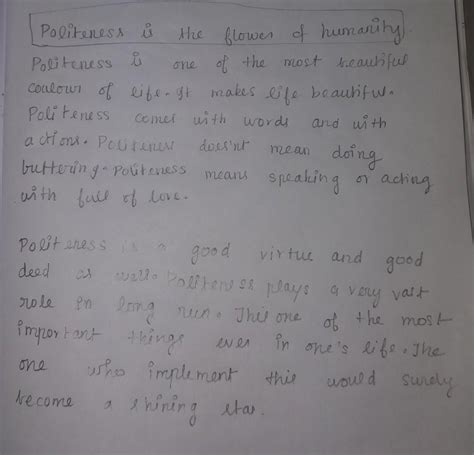 Politeness is the flower of humanity.
Politeness is one of the most beautiful
coulour of life. It makes life beautiful.
Politeness comes with words and with
actions. Politeness does'nt mean doing
buttering. Politeness means speaking or acting
with full of love.
Politeness is a good virtue and good
deed as well. Politeness plays a very vast
role in long run. This one of the most
important things ever in one's life. The
one who implement this would surely
become a shining star.